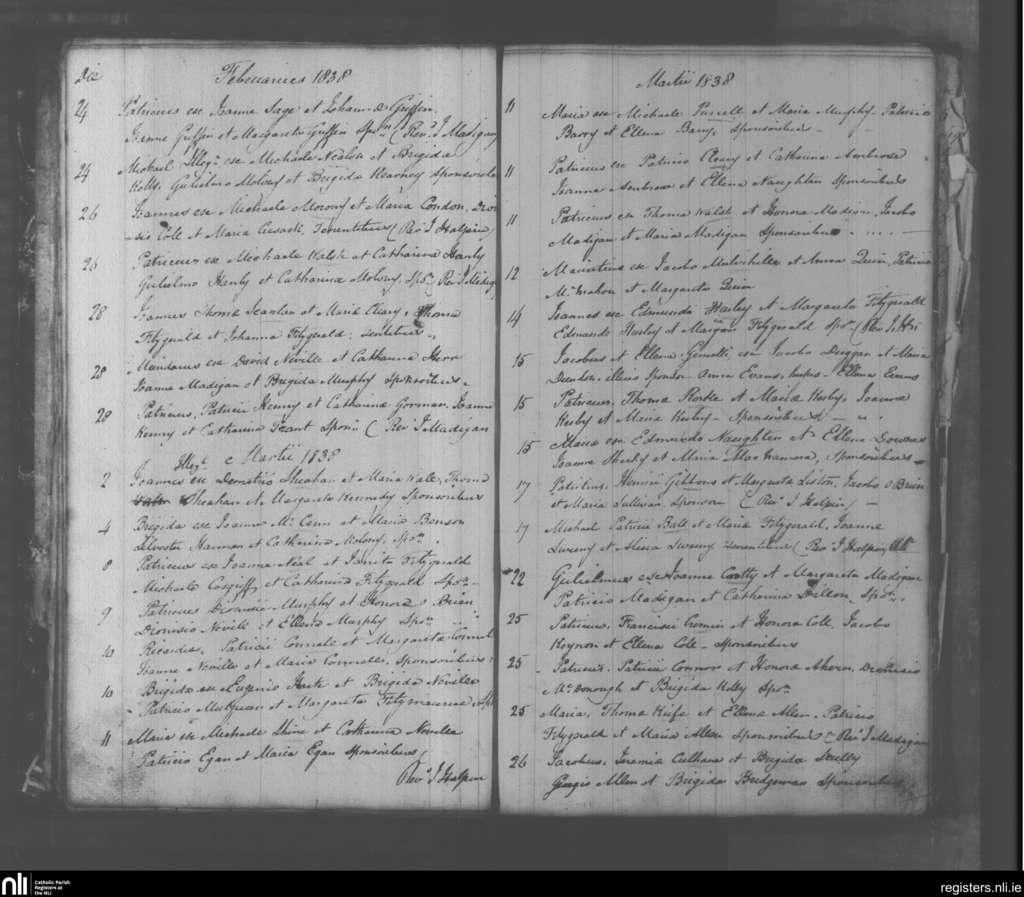 Die Februarius 1838
24 Patricius ex Joanne Sage et Joham & Griffin
Joanne Griffin et Margareta Griffin Spᵒʳˢ (Revᵈ J Madigan
24 Michael Illegᵗ ex Michaele Nealon et Brigida
Kelly, Gulielmo Molony et Brigida Kearney Sponsoribus
26 Joannes ex Michaele Morony et Maria Condon, Dion
-sio Coll et Maria Cusack, Tenentibus (Revᵈ J Halpin)
26 Patricius ex Michaele Walsh et Catharina Hanly
Gulielmo Hanly et Catharina Molony, Spᵒʳˢ Revᵈ J Madig
28 Joannes Thoma Scanlan et Maria Cleary, Thoma
Fitzgerald et Johanna Fitzgerald
28 ex David Neville et Catharina
Joanne Madigan et Brigida Murphy Sponsoribus
28 Patricius, Patricii Kenny et Catharina Gorman, Joanne
Kenny et Catharina Spons (Revᵈ J Madigan
Illegᵗ Martii 1838
2 Joannes ex Demetrio Sheahan et Maria Thoma
Sheahan et Margareta Kennedy Sponsoribus
4 Brigida ex Joanne Mᶜ et Maria Benson
Silvester Hannan et Catharina Molony, Spᵒʳˢ
8 Patricius ex Joanne Neal et Fitzgerald
Michaele et Catharina Fitzgerald Spᵒʳˢ
9 Patricius Dionisii Murphy et Honora O Brien
Dionisio Neville et Ellena Murphy Spᵒʳˢ
10 Ricardus, Patricii Connale et Margareta Connel
Joanne Neville et Maria Connelle, Sponsoribus
10 Brigida ex Eugenio et Brigida Neville
Patricio et Margareta Fitzmaurice Sp
11 Maria ex Michaele Shine et Catharina Neville
Patricio Egan et Maria Egan Sponsoribus
Revᵈ J Halpin
Martii 1838
11 Maria ex Michaele Purcell et Maria Murphy Patricio
Barry et Ellena Barry, Sponsoribus
11 Patricius ex Patricio Cleary et Catharina Ambrose
Joanne Ambrose et Ellena Naughten Sponsoribus
11 Patricius ex Thoma Walsh et Honora Madigan, Jacobo
Madigan et Maria Madigan Sponsoribus
12 ex Jacobo Mulvihille et Anna Quin, Patricio
Mᶜ Mahon et Margareta Quin
14 Joannes ex Edmundo Hurley et Margareta Fitzgerald
Edmundo Hurley et Margar Fitzgerald Spᵒʳˢ (Revᵈ
15 Jacobus et Ellena Gemelli ex Jacobo Duggan et Maria
Anna Evans, Ellena Evans
15 Patricius, Thoma Rorke et Maria Kerby, Joanne
Kerby et Maria Kerby Sponsoribus
15 Maria ex Edmundo Naughten et Ellena
Joanne et Maria MacNamara, Sponsoribus
17 Patritius, Henrii Gibbons et Augusta Liston, Jacobo O Brien
et Maria Sullivan, Sponsor (Revᵈ J Halpin)
17 Michael Patricii Ball et Maria Fitzgerald, Joanne
Sweeny et Sweeny Tenentibus (Revᵈ J Halpin)
22 Gulielmus ex Joanne et Margareta Madigan
Patricio Madigan et Catharina Dillon, Spᵒʳˢ
25 Patricius, Francisci Cronin et Honora Coll, Jacobo
et Ellena Coll Sponsoribus
25 Patricius, Patricii Connor et Honora Ahern, Dionisio
Mᶜ Donough et Brigida Kelly Spᵒʳˢ
25 Maria, Thoma Kiefe et Ellena Allen, Patricio
Fitzgerald et Maria Allen Sponsoribus (Revᵈ J Madigan
26 Jacobus, Jeremia Culhane et Brigida
Georgio Allen et Brigida Bridgeman Sponsoribus
nli Catholic Parish
Registers at
the NLI
registers.nli.ie